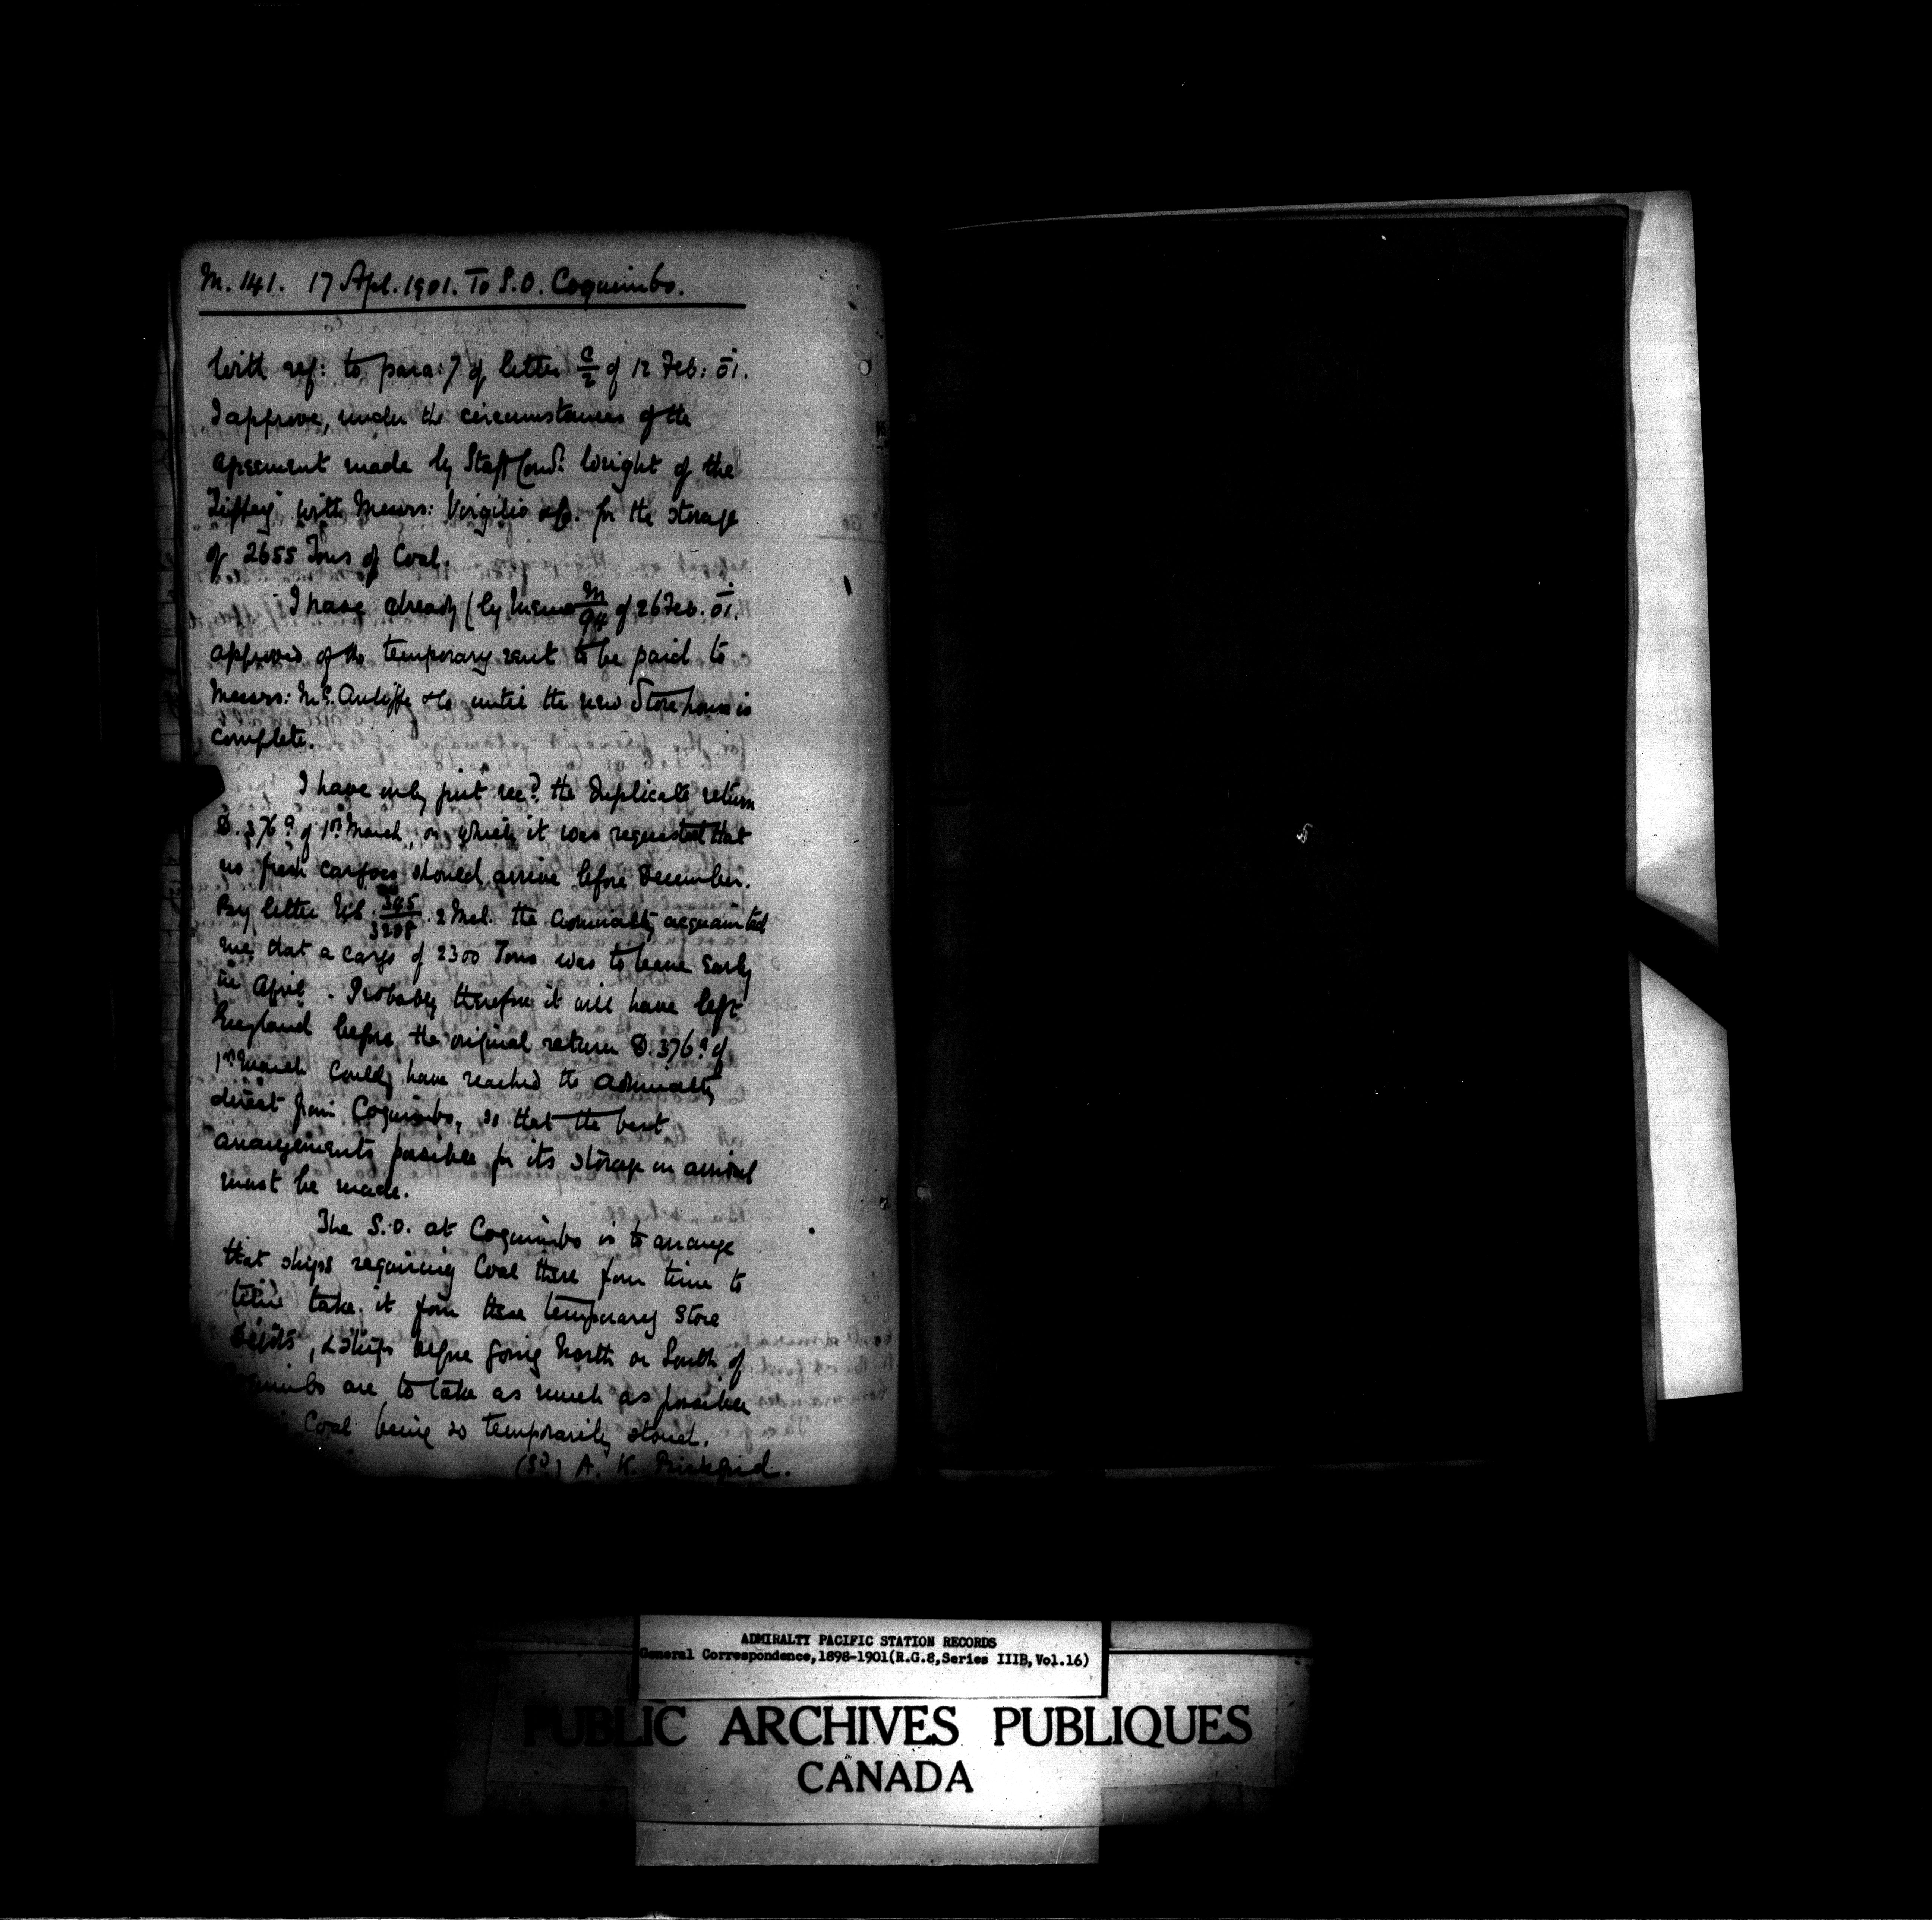 M. 141. 17 Apl. 1901. To S.O. Coquimbo.
With ref: to para: 7 of letter C/2 of 12 Feb: 01.
I approve, under the circumstances of the
agreement made by Staff Comdr. Wright of the
"Liffey" with Messrs: Virgilio & Co. for the storage
of 2655 Tons of Coal.
I have already (by Memo M/94 of 26 Feb. 01.
approved of the temporary rent to be paid to
Messrs: McAuliffe & Co until the new Store house is
complete.
I have only just recd. the Duplicate return
D. 376a of 1st March, on which it was requested that
no fresh cargoes should arrive before December.
By letter 345/3208 2 Mch. the Admiralty acquainted
me, that a cargo of 2300 Tons was to leave early
in April. Probably therefore it will have left
England before the original return D. 376a of
1st March could have reached the Admiralty
direct from Coquimbo, so that the best
arrangements possible for its storage on arrival
must be made.
The S.O. at Coquimbo is to arrange
that ships requiring Coal there from time to
time take it from these temporary Store
Depôts, & ships before going North or South of
Coquimbo are to take as much as possible
Coal being so temporarily stored.
(Sd.) A. K. Bickford.
ADMIRALTY PACIFIC STATION RECORDS
General Correspondence, 1898-1901 (R.G.8, Series IIIB, Vol.16)
PUBLIC ARCHIVES PUBLIQUES
CANADA